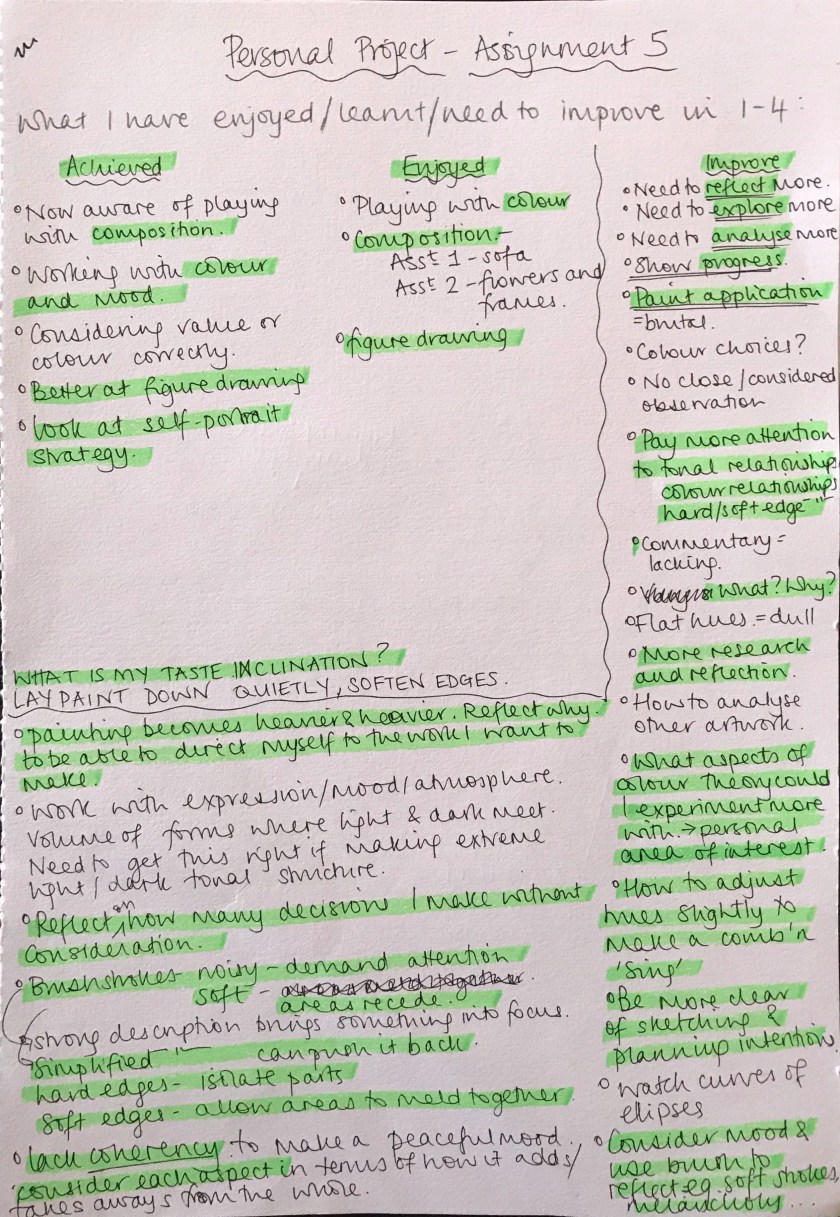 Personal Project - Assignment 5
What I have enjoyed/learnt/need to improve in 1-4:
Achieved
• Now aware of playing
with composition.
• Working with colour
and mood.
• Considering value or
colour correctly.
• Better at figure drawing
• Look at self-portrait
strategy.
Enjoyed
• Playing with colour
• Composition -
Asst 1 - sofa
Asst 2 - flowers and
frames.
• figure drawing
Improve
• Need to reflect more.
• Need to explore more
• Need to analyse more
• Show progress.
• Paint application
= brutal.
• Colour choices?
• No close/considered
observation
• Pay more attention
to tonal relationship
colour relationships
hard/soft edge "
• Commentary =
lacking.
• What? Why?
• Flat hues = dull
• More research
and reflection.
• How to analyse
other artwork.
• What aspects of
colour theory could
I experiment more
with. → personal
area of interest!
• How to adjust
hues slightly to
make a comb'n
'sing'
• Be more clear
of sketching &
planning intention.
• Watch curves of
elipses
• Consider mood &
use brush to
reflect eg. soft strokes,
melancholy...
WHAT IS MY TASTE INCLINATION?
LAY PAINT DOWN QUIETLY, SOFTEN EDGES.
• painting becomes heavier & heavier. Reflect why.
to be able to direct myself to the work I want to
make.
• Work with expression/mood/atmosphere.
Volume of forms where light & dark meet.
Need to get this right if making extreme
light/dark tonal structure.
• Reflect on how many decisions I make without
consideration.
• Brushstrokes noisy - demand attention
soft -
areas recede.
strong description brings something into focus.
Simplified " can push it back.
hard edges - isolate parts
Soft edges - allow areas to meld together.
• lack coherency to make a peaceful mood.
consider each aspect in terms of how it adds/
takes aways from the whole.